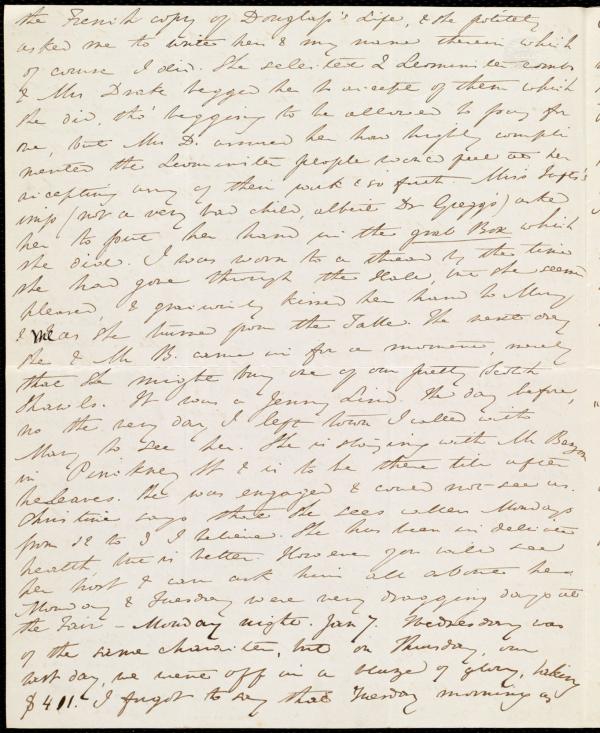 the French copy of Douglass's Life, & she politely
asked me to write her & my name therein which
of course I did. She selected 2 Leominster combs
& Mrs Drake begged her to accept of them which
she did, tho' begging to be allowed to pay for
one, but Mrs D. assured her how highly compli
mented the Leominster people would feel at her
accepting any of their work & so forth. Miss
imp (not a very bad child, albeit Dr Gregg's) asked
her to put her hand in the grab Box which
she did. I was worn to a thread by the time
she had gone through the Hall, but she seemed
pleased, & graciously kissed her hand to Mary
& me as she turned from the Table. The next day
she & Mr B. came in for a moment, merely
that she might buy one of our pretty Scotch
Shawls. It was a Jenny Lind. The day before,
no the very day I left town I called with
Mary to see her. She is staying with Mr
in Pinckney St & is to be there till after
he leaves. She was engaged & could not see us.
Christine says that she sees callers Mondays
from 12 to 3 I believe. She has been in delicate
health but is better. However you will see
her host & can ask him all about her.
Monday & Tuesday were very dragging days at
the Fair - Monday night. Jan 7. Wednesday was
of the same character, but on Thursday, our
last day, we went off in a blaze of glory, taking
$411. I forgot to say that Tuesday morning as